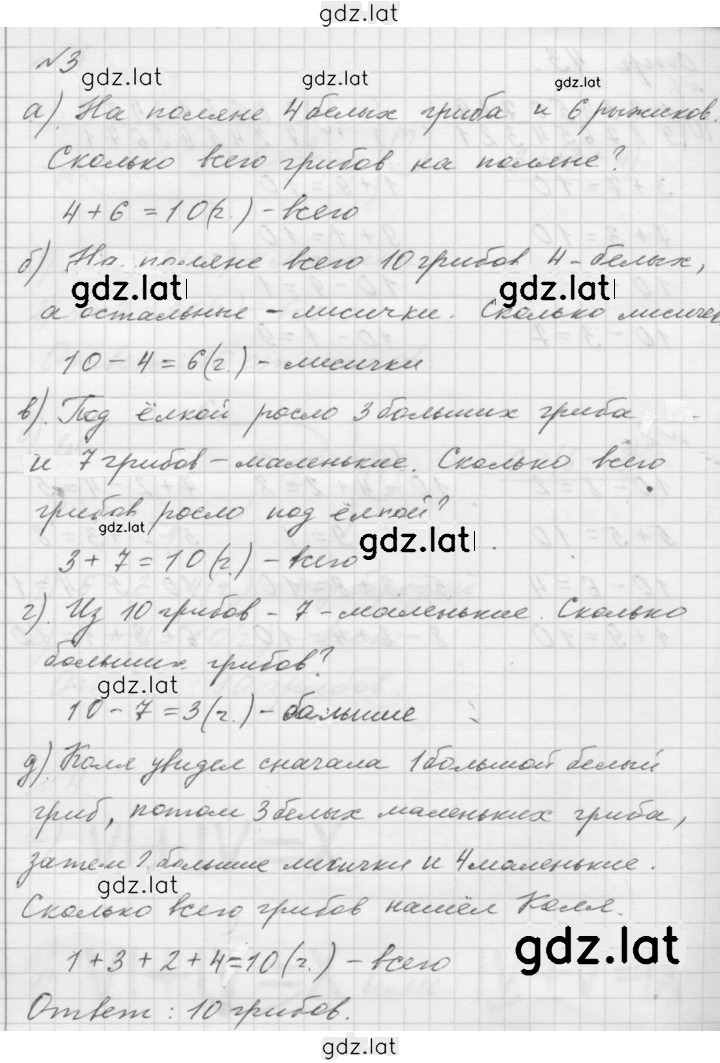 gdz.lat
№3
gdz.lat gdz.lat gdz.lat
а). На поляне 4 белых гриба и 6 рыжиков.
Сколько всего грибов на поляне?
4 + 6 = 10 (г.) - всего
б) На поляне всего 10 грибов 4 - белых,
gdz.lat gdz.lat
а остальные - лисички. Сколько лисичек
10 - 4 = 6 (г.) - лисички
в). Под ёлкой росло 3 больших гриба
и 7 грибов - маленькие. Сколько всего
грибов росло под ёлкой?
gdz.lat gdz.lat
3 + 7 = 10 (г.) - всего
г). Из 10 грибов - 7 - маленькие. Сколько
больших грибов?
gdz.lat
10 - 7 = 3 (г.) - большие
д). Коля увидел сначала 1 большой белый
гриб, потом 3 белых маленьких гриба,
затем 2 большие лисички и 4 маленькие.
gdz.lat
Сколько всего грибов нашёл Коля.
1 + 3 + 2 + 4 = 10 (г.) - всего
gdz.lat
Ответ : 10 грибов.
gdz.lat